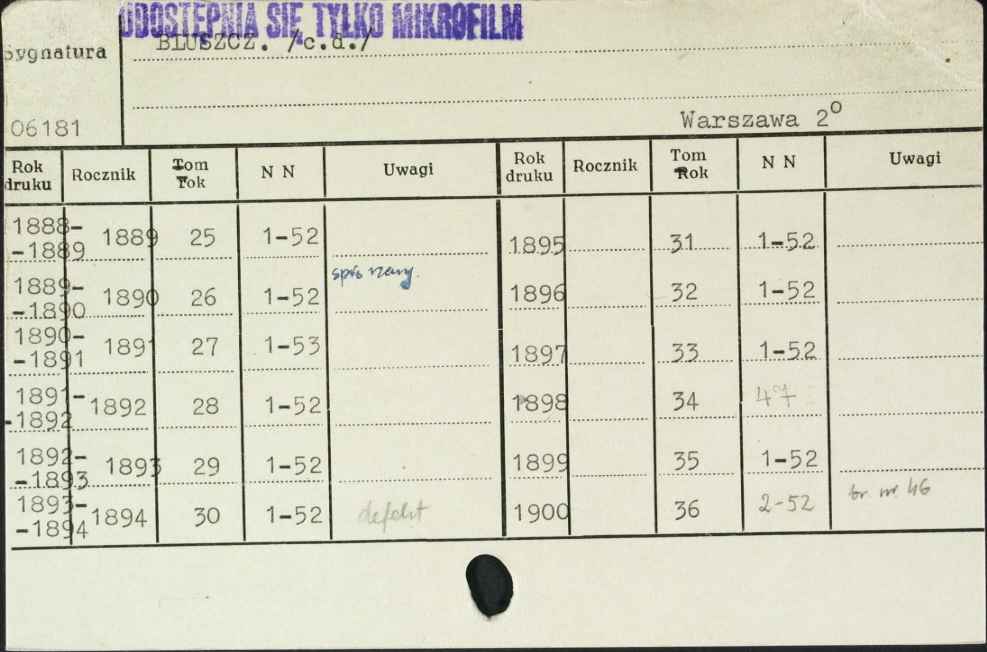 UDOSTĘPNIA SIĘ TYLKO MIKROFILM
BLUSZCZ. /c.d./
Sygnatura
06181
Warszawa 2°
Rok druku Rocznik Tom Rok N N Uwagi Rok druku Rocznik Tom Rok N N Uwagi
1888-
-1889 1889 25 1-52 1895 31 1-52
1889-
-1890 1890 26 1-52 1896 32 1-52
1890-
-1891 1891 27 1-53 1897 33 1-52
1891-
-1892 1892 28 1-52 1898 34 47
1892-
-1893 1893 29 1-52 1899 35 1-52
1893-
-1894 1894 30 1-52 defekt 1900 36 2-52 br. nr 46